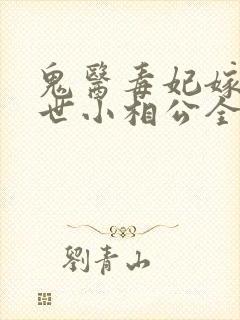 鬼醫毒妃嫁
世小相公全
劉青山